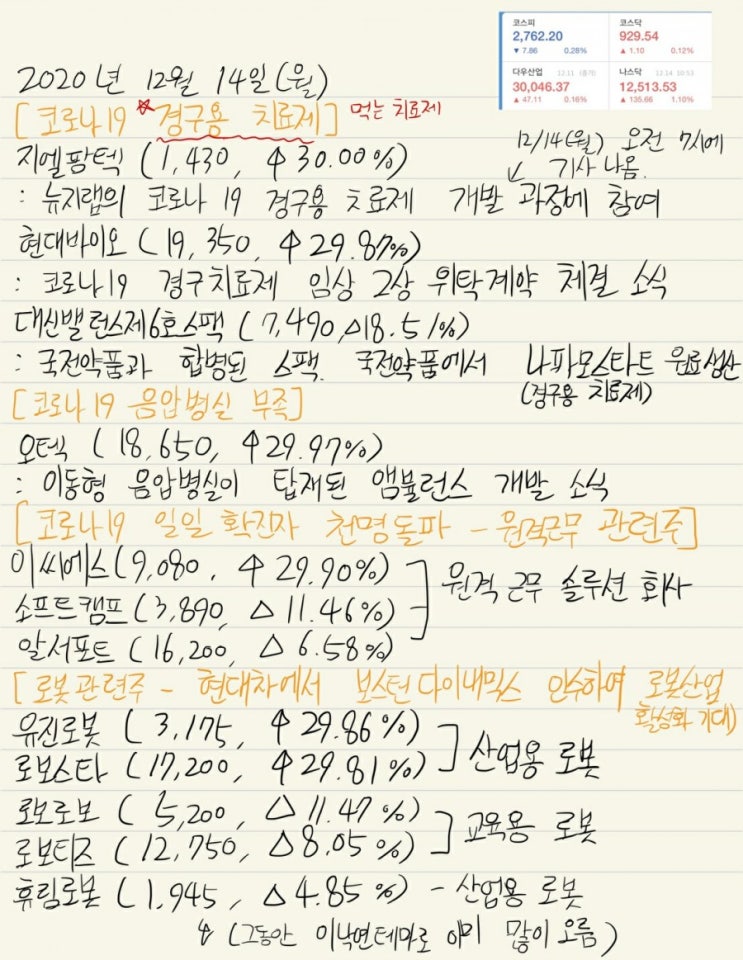 코스피 코스닥
2,762.20 929.54
▼ 7.86 0.28% ▲ 1.10 0.12%
다우산업 12.11 (종가) 나스닥 12.14 10:53
30,046.37 12,513.53
▲ 47.11 0.16% ▲ 135.66 1.10%
2020년 12월 14일(월)
[코로나19 *경구용 치료제] 먹는 치료제
12/14(월) 오전 7시에
↙ 기사 나옴.
지엘팜텍 (1,430, ↑30.00%)
: 뉴지랩의 코로나 19 경구용 치료제 개발 과정에 참여
현대바이오 (19,350, ↑29.87%)
: 코로나19 경구치료제 임상 2상 위탁계약 체결 소식
대신밸런스제6호스팩 (7,490,△18.51%)
: 국전약품과 합병된 스팩. 국전약품에서 나파모스타트 원료생산
(경구용 치료제)
[코로나19 음압병실 부족]
오텍 (18,650, ↑29.97%)
: 이동형 음압병실이 탑재된 앰뷸런스 개발 소식
[코로나19 일일 확진자 천명돌파 - 원격근무 관련주]
이씨에스(9,080, ↑29.90%)
소프트캠프(3,890, △11.46%) 원격 근무 솔루션 회사
알서포트 (16,200, △6.58%)
[로봇관련주 - 현대차에서 보스턴다이내믹스 인수하여 로봇산업
활성화 기대)
유진로봇 (3,175, ↑29.86%)
로보스타 (17,200, ↑29.81%) 산업용 로봇
로보로보 (5,200, △11.47%)
로보티즈 (12,750, △8.05%) 교육용 로봇
휴림로봇 (1,945, △4.85%) - 산업용 로봇
↳ (그동안 이낙연테마로 이미 많이 오름)